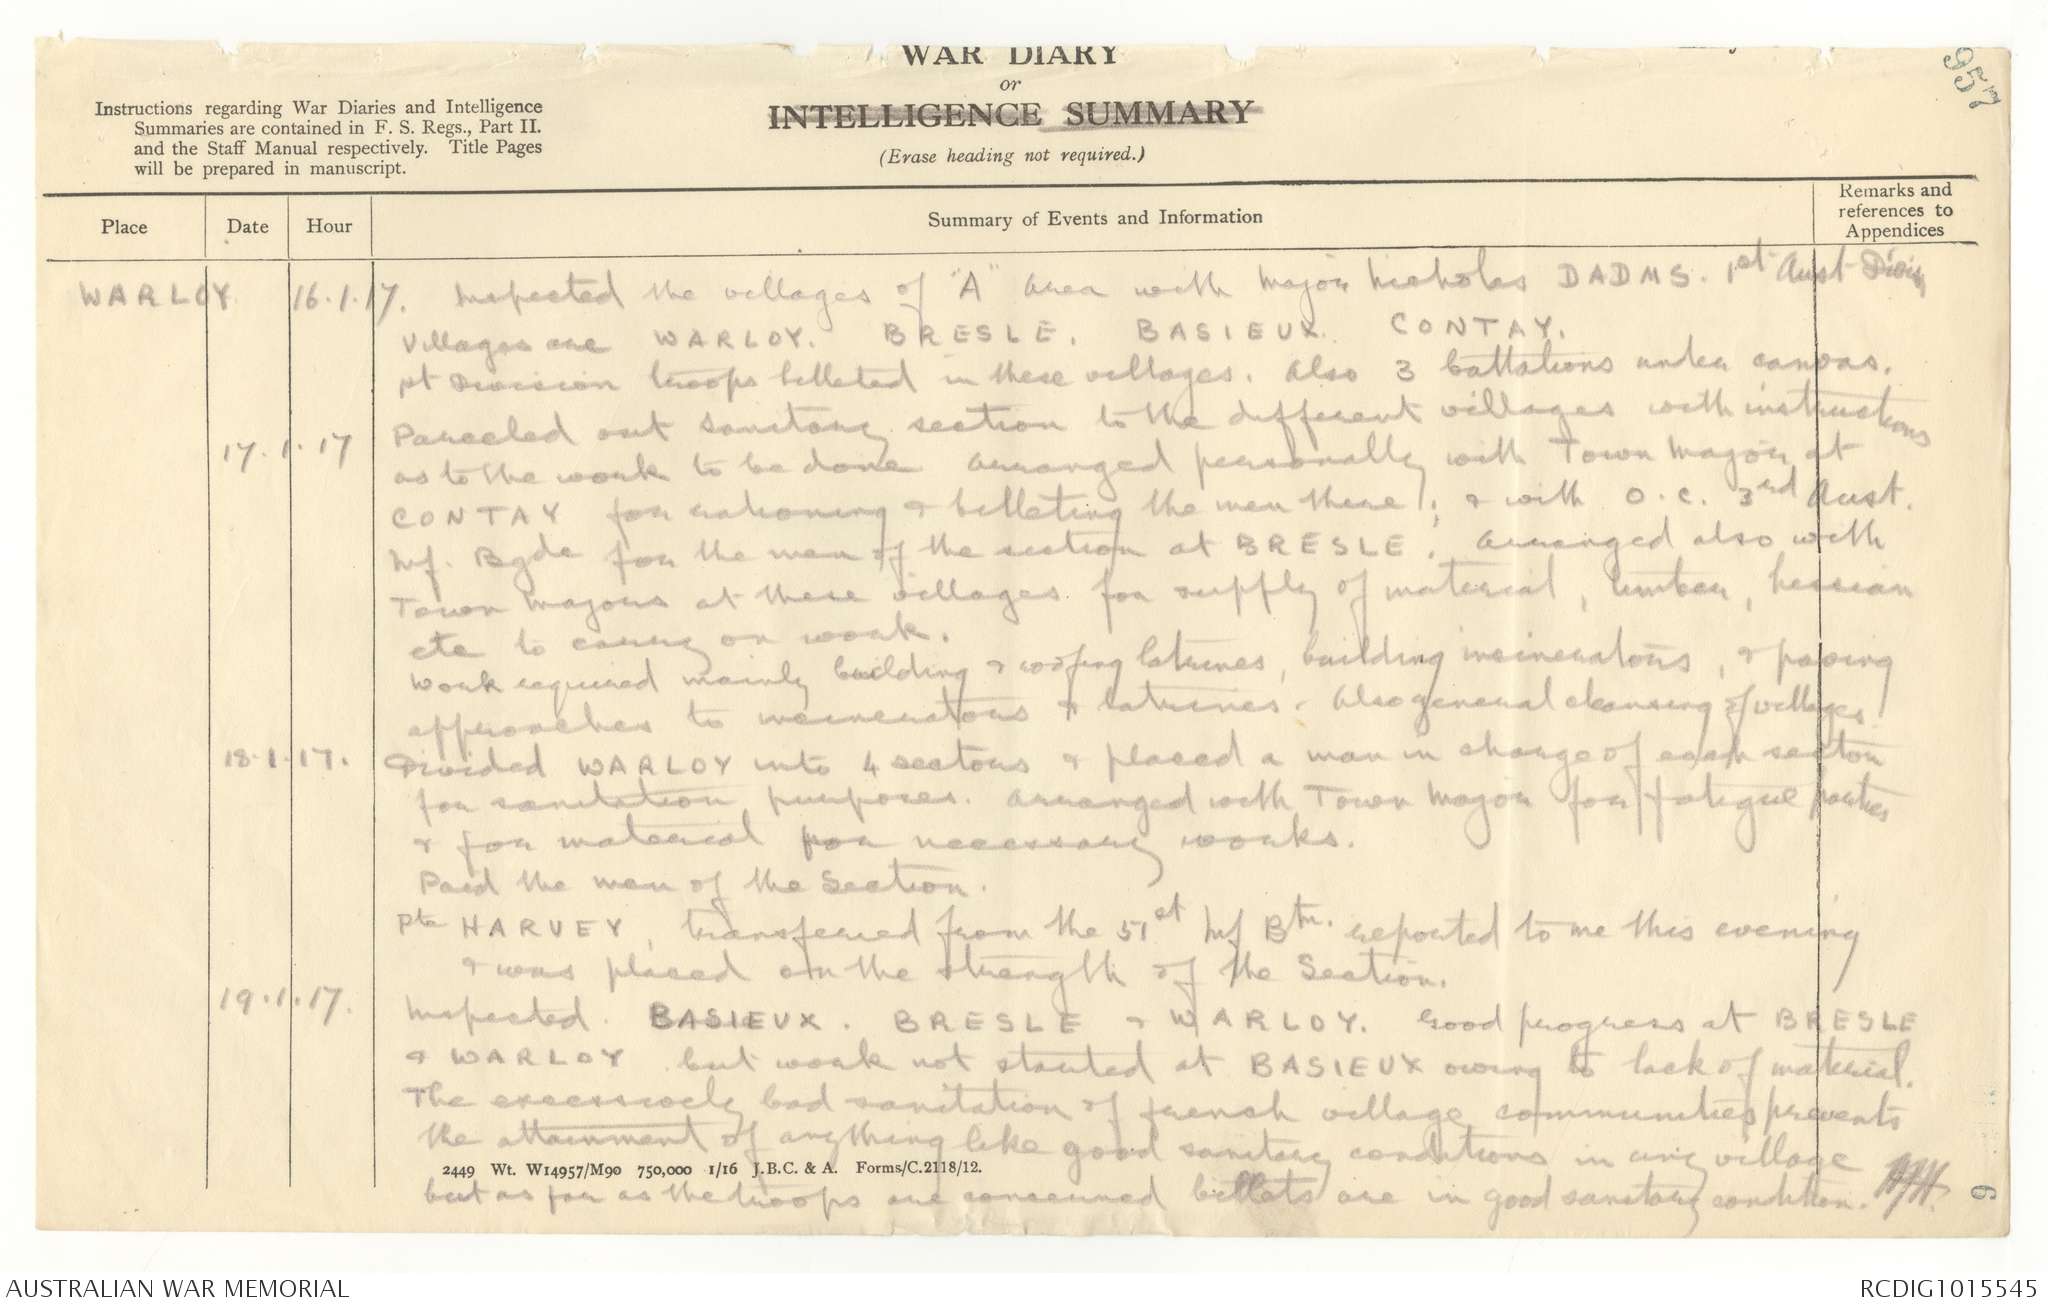 WAR DIARY
or
INTELLIGENCE SUMMARY
(Erase heading not required.)
957
Instructions regarding War Diaries and Intelligence
Summaries are contained in F. S. Regs., Part II.
and the Staff Manual respectively. Title Pages
will be prepared in manuscript.
Place Date Hour Summary of Events and Information Remarks and
references to
Appendices
WARLOY 16.1.17. Inspected the villages of "A" area with Major Nicholas DADMS. 1st Aust Divis
Villages are WARLOY. BRESLE. BASIEUX. CONTAY.
1st Division troops billeted in these villages. Also 3 battalions under canvas.
17.1.17 Parceled out sanitary section to the different villages with instructions
as to the work to be done Arranged personally with Town Major at
CONTAY for rationing & billeting the men there; & with O.C. 3rd Aust.
Inf. Bgde for the men of the section at BRESLE. Arranged also with
Town Majors at these villages for supply of material, timber, hessian
etc to carry on work.
Work required mainly building & roofing latrines, building incinerators, & paving
approaches to incinerators & latrines. Also general cleansing of villages.
18.1.17. Divided WARLOY into 4 sectors & placed a man in charge of each sector
for sanitation purposes. Arranged with Town Major for fatigue parties
& for material for necessary works.
Paid the men of the Section.
Pte HARVEY, transferred from the 51st Inf Btn. reported to me this evening
& was placed on the strength of the Section.
19.1.17. Inspected BASIEUX. BRESLE & WARLOY. Good progress at BRESLE
& WARLOY but work not started at BASIEUX owing to lack of material.
The excessively bad sanitation of french village communities prevents
the attainment of anything like good sanitary conditions in any village
2449 Wt. W14957/M90 750,000 1/16 J.B.C. & A. Forms/C.2118/12.
but as far as the troops are concerned billets are in good sanitary condition.
6
AUSTRALIAN WAR MEMORIAL RCDIG1015545